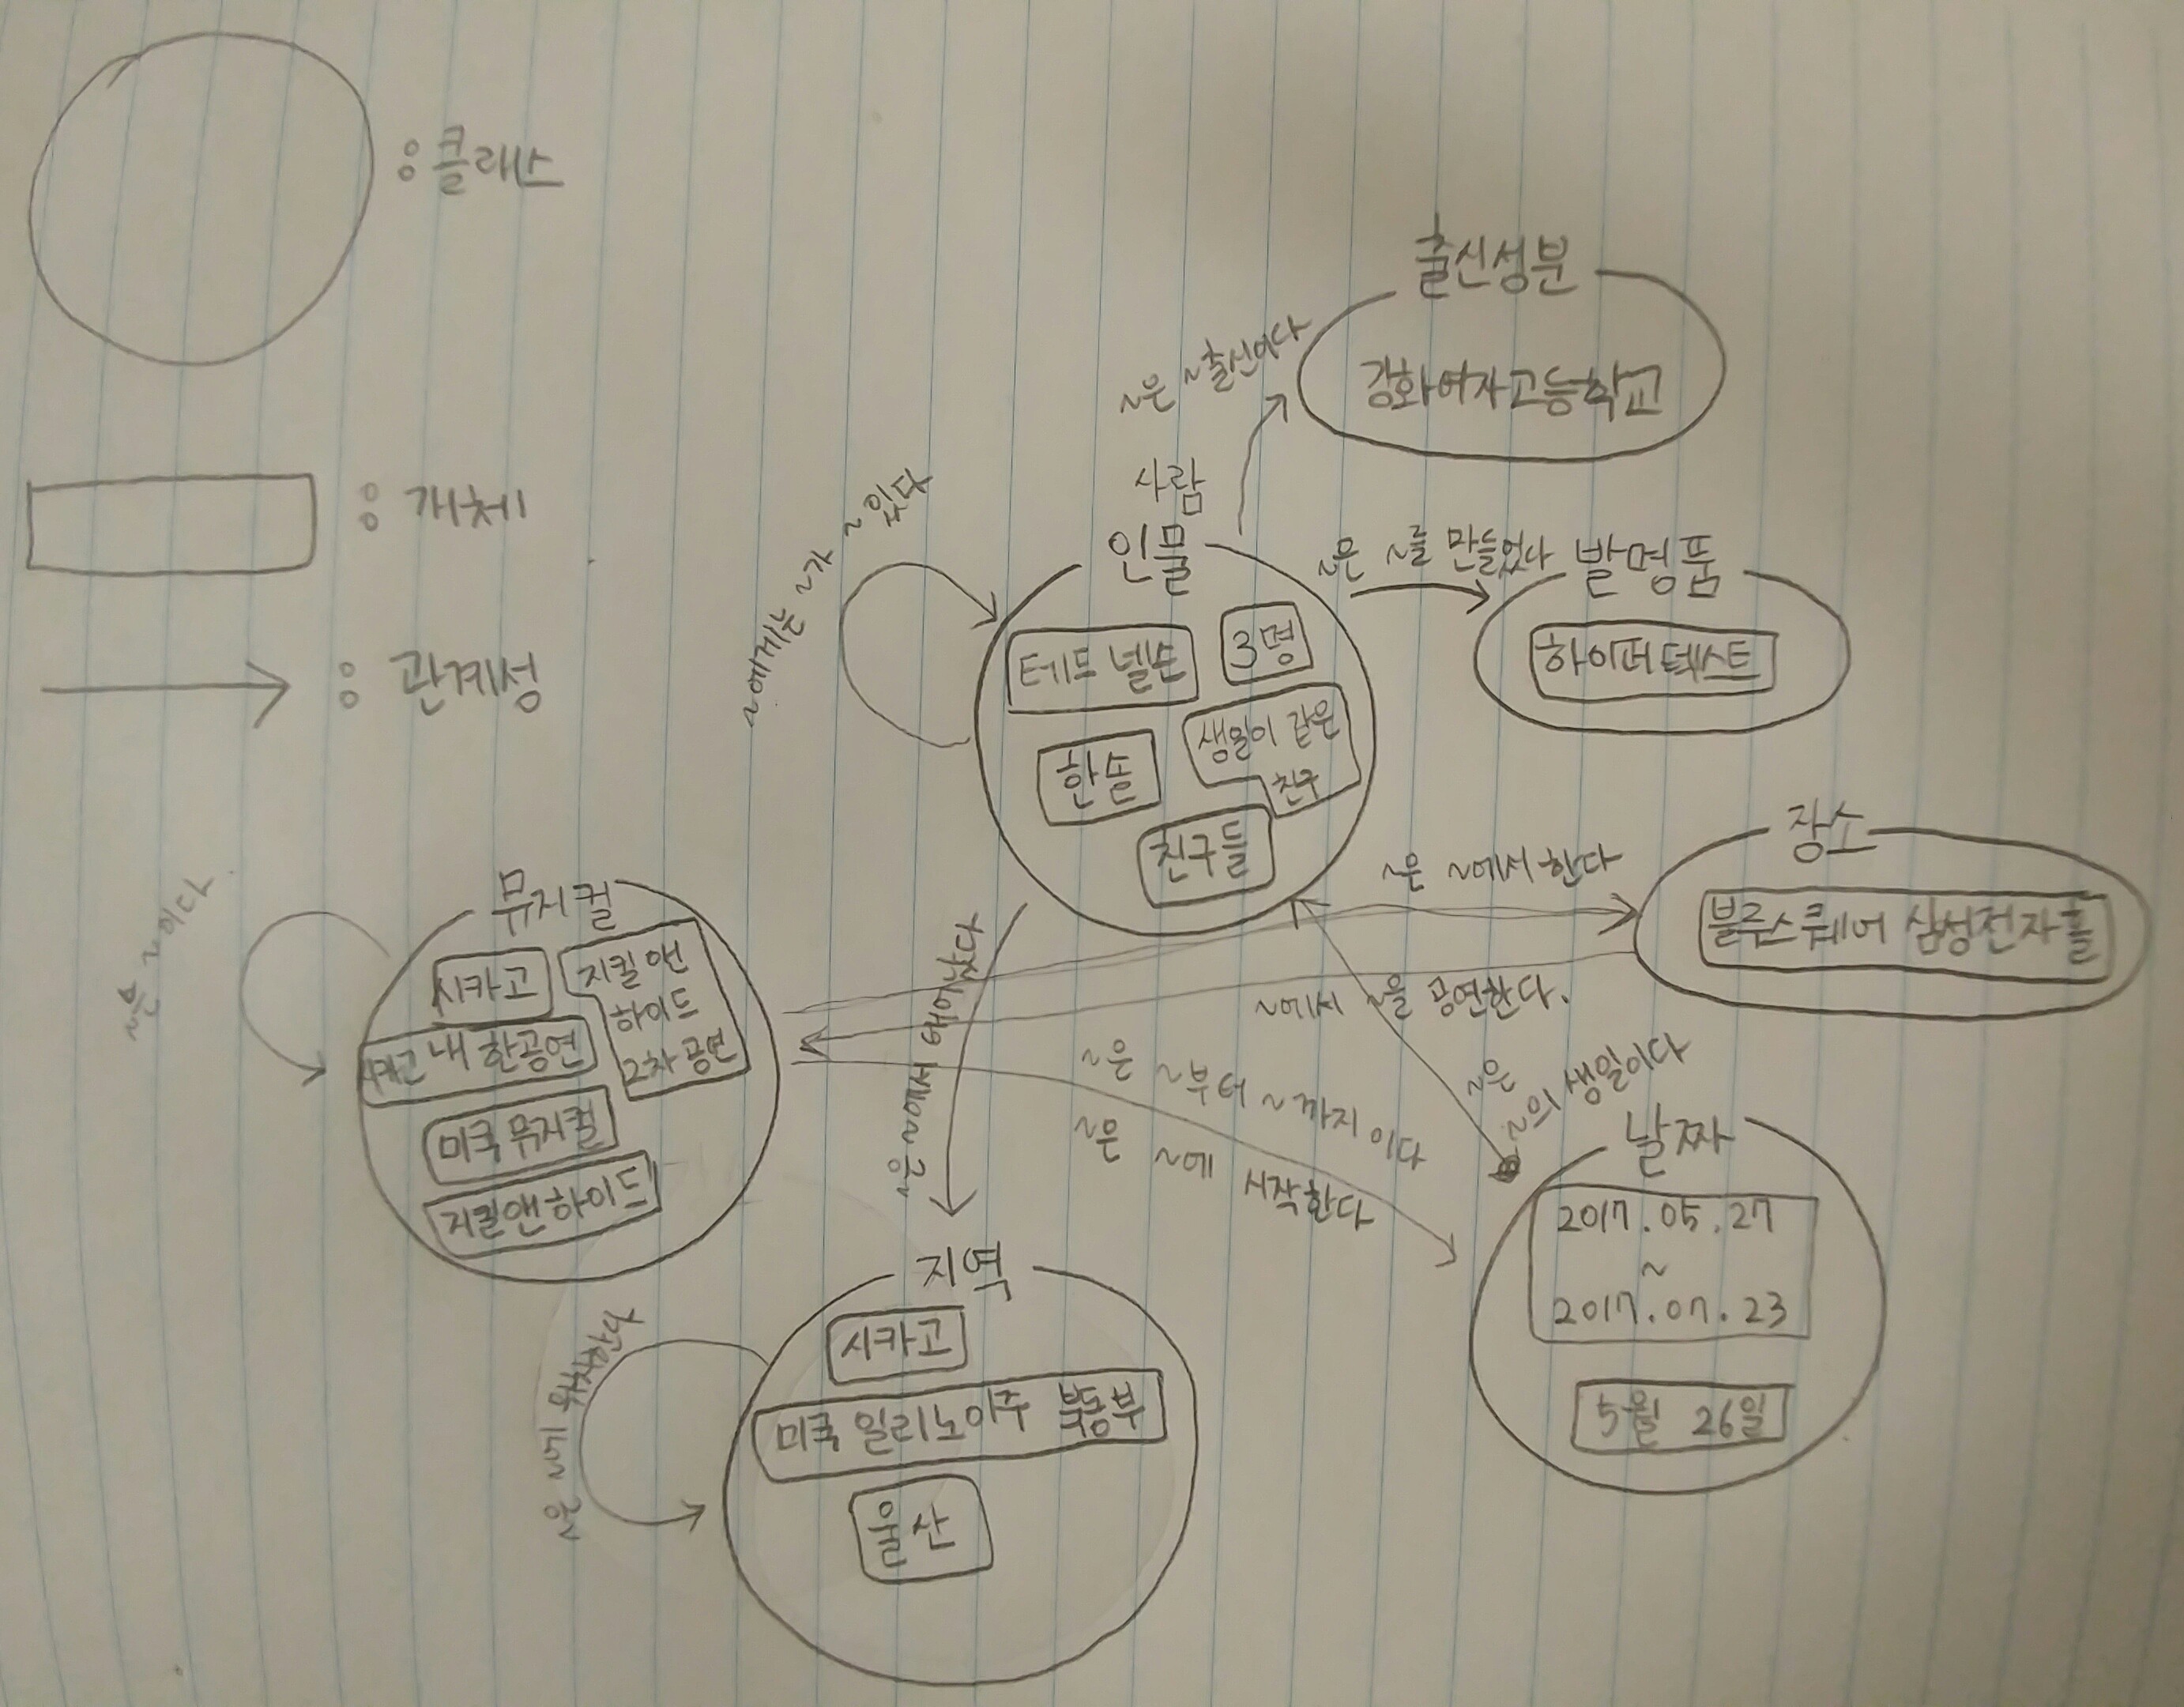 : 클래스
: 개체
: 관계성
출신성분
강화여자고등학교
~은 ~출신이다
사람
인물
~에게는 ~가 ~있다
테드 넬슨
3명
한솔
생일이 같은
친구
친구들
~은 ~를 만들었다
발명품
하이퍼텍스트
장소
블루스퀘어 삼성전자홀
~은 ~에서 한다
~에서 ~을 공연한다.
뮤지컬
~은 ~이다
시카고
지킬앤
하이드
2차 공연
시카고 내한공연
미국 뮤지컬
지킬앤하이드
~은 ~에서 태어났다
~은 ~부터 ~까지 이다
~은 ~에 시작한다
~은
~의 생일이다
날짜
2017.05.27
~
2017.07.23
5월 26일
지역
~은 ~에 위치한다
시카고
미국 일리노이주 북동부
울산